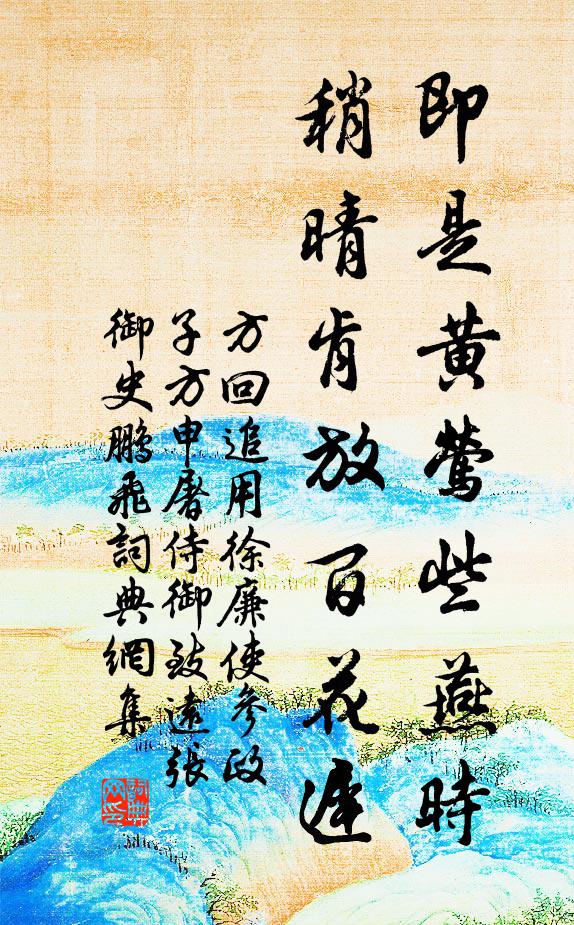 即是黃鶯些燕時
稍晴肯放百花遲
方回追用徐廉使參政
子方申屠侍御致遠張
御史鵬飛詞典網集